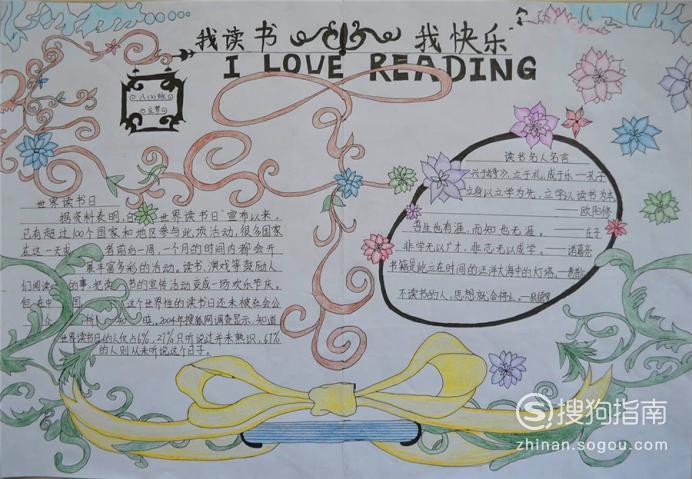 我读书 我快乐
I LOVE READING
世界读书日
据资料表明,自"世界读书日"宣布以来,
已有超过100个国家和地区参与此项活动,很多国家
在这一天或 者前后一周,一个月的时间内都会开
展丰富多彩的活动。读书、演戏等鼓励人
们阅读 的事,把 书的宣传活动变成一场欢乐节庆。
但在中国 这个世界性的读书日还未被社会公
2004年搜狐网调查显示,知道
世界读书日的人仅占6%,27%只听说过并未熟识,67%
的人则从未听说这个日子。
读书名人名言
兴于诗,立于礼,成于乐—孔子
立身以立学为先,立学以读书为本
—欧阳修
吾生也有涯,而知也无涯。—庄子
非学无以广才,非志无以成学。—诸葛亮
书籍是屹立在时间的汪洋大海中的灯塔。
不读书的人,思想就会停止。—狄德罗
搜狗指南
zhinan.sogou.com